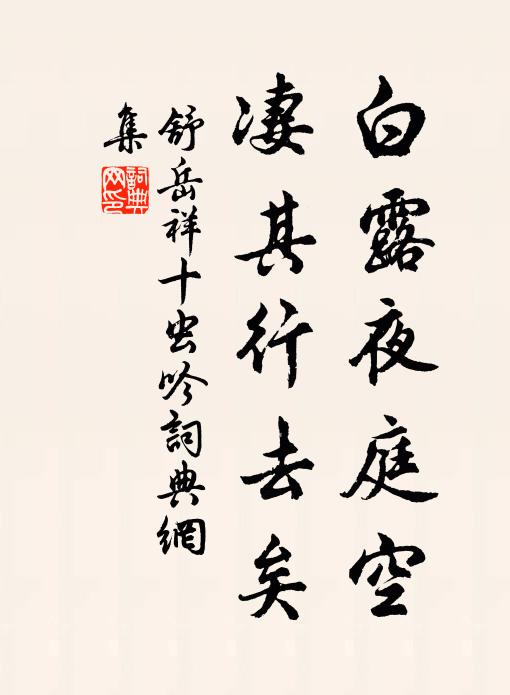 白露夜庭空
凄其行去矣
舒岳祥十虫吟詞典網
集
詞典网印